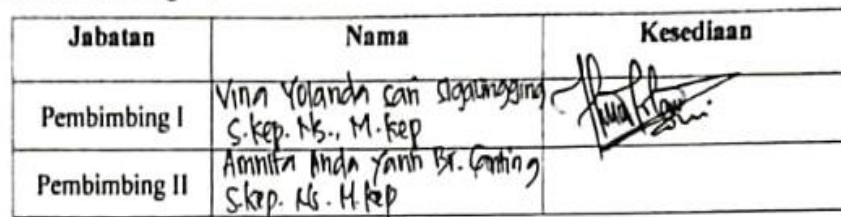 Jabatan Nama Kesediaan
Pembimbing I Vina Yolanda Sari Sigalingging
S.kep. Ns., M.kep
Pembimbing II Amnita Anda Yanti Br. Ginting
S.kep. Ns. M.kep